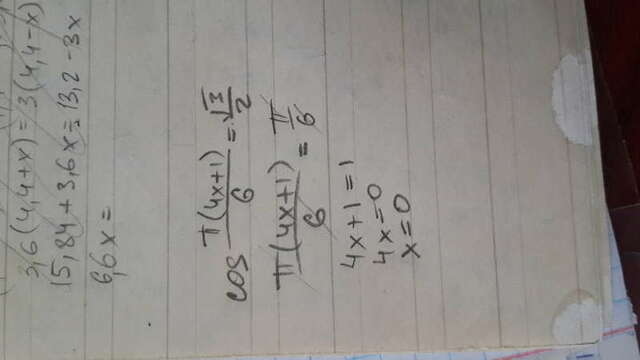 3,6(4,4+x)=3(4,4-x)
15,84+3,6x=13,2-3x
6,6x=
cos π(4x+1)/6 = √3/2
π(4x+1)/6 = π/6
4x+1=1
4x=0
x=0